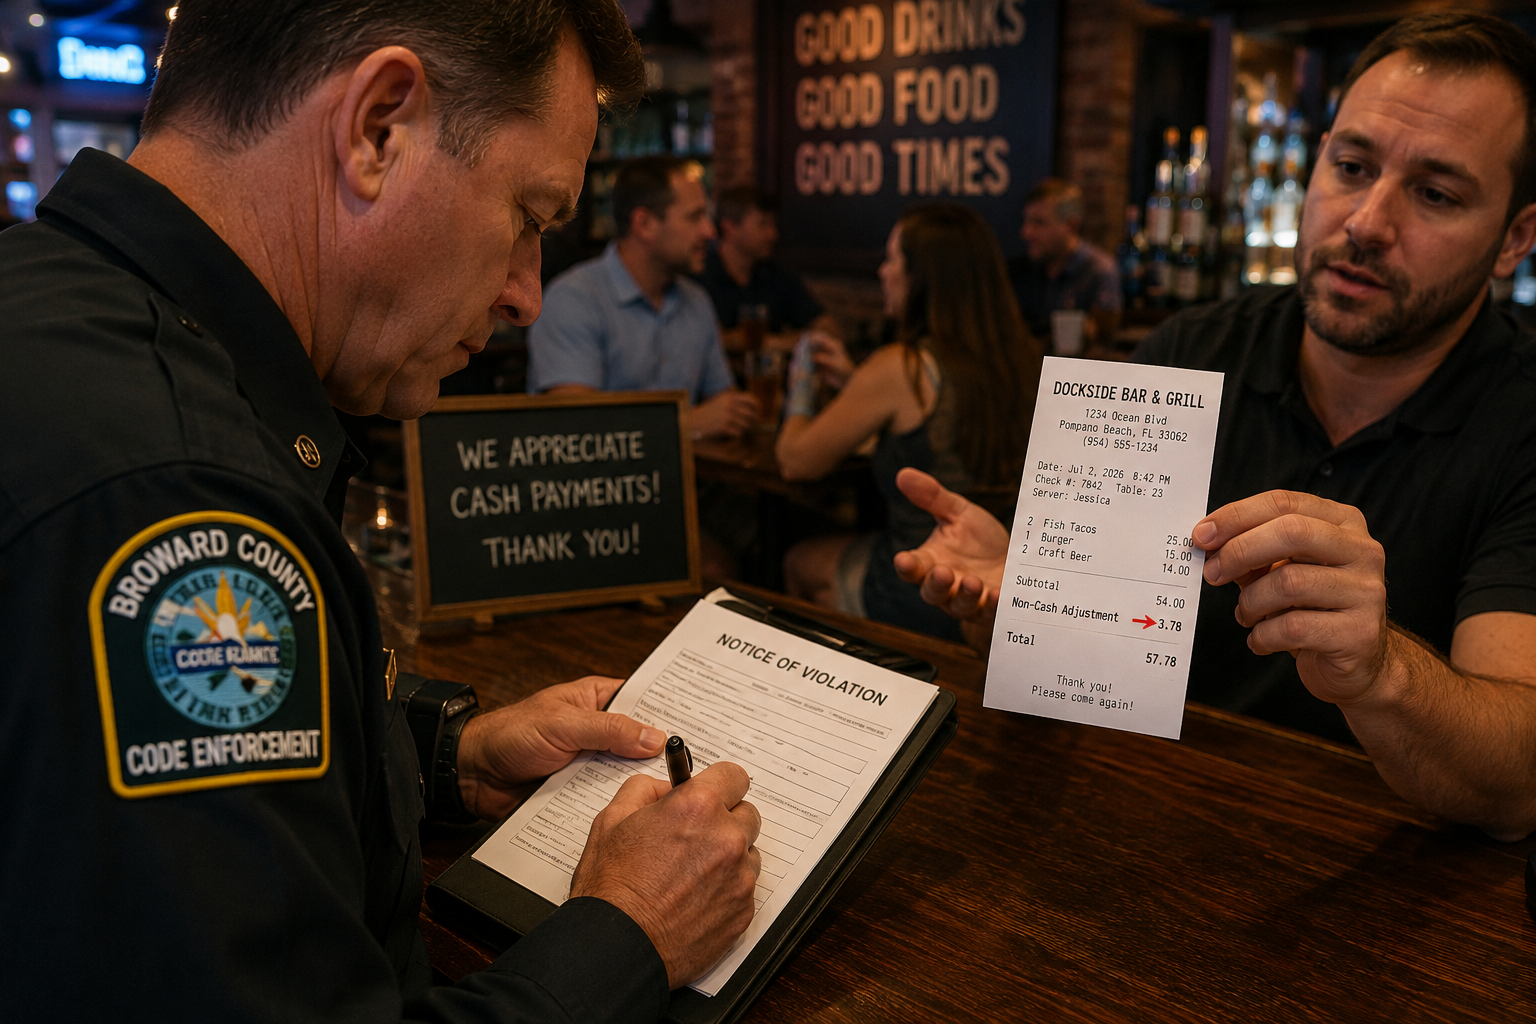 GOOD DRINKS
GOOD FOOD
GOOD TIMES
WE APPRECIATE
CASH PAYMENTS!
THANK YOU!
BROWARD COUNTY
CODE ENFORCEMENT
NOTICE OF VIOLATION
DOCKSIDE BAR & GRILL
1234 Ocean Blvd
Pompano Beach, FL 33062
(954) 555-1234
Date: Jul 2, 2026 8:42 PM
Check #: 7842 Table: 23
Server: Jessica
2 Fish Tacos 25.00
1 Burger 15.00
2 Craft Beer 14.00
Subtotal 54.00
Non-Cash Adjustment 3.78
Total 57.78
Thank you!
Please come again!